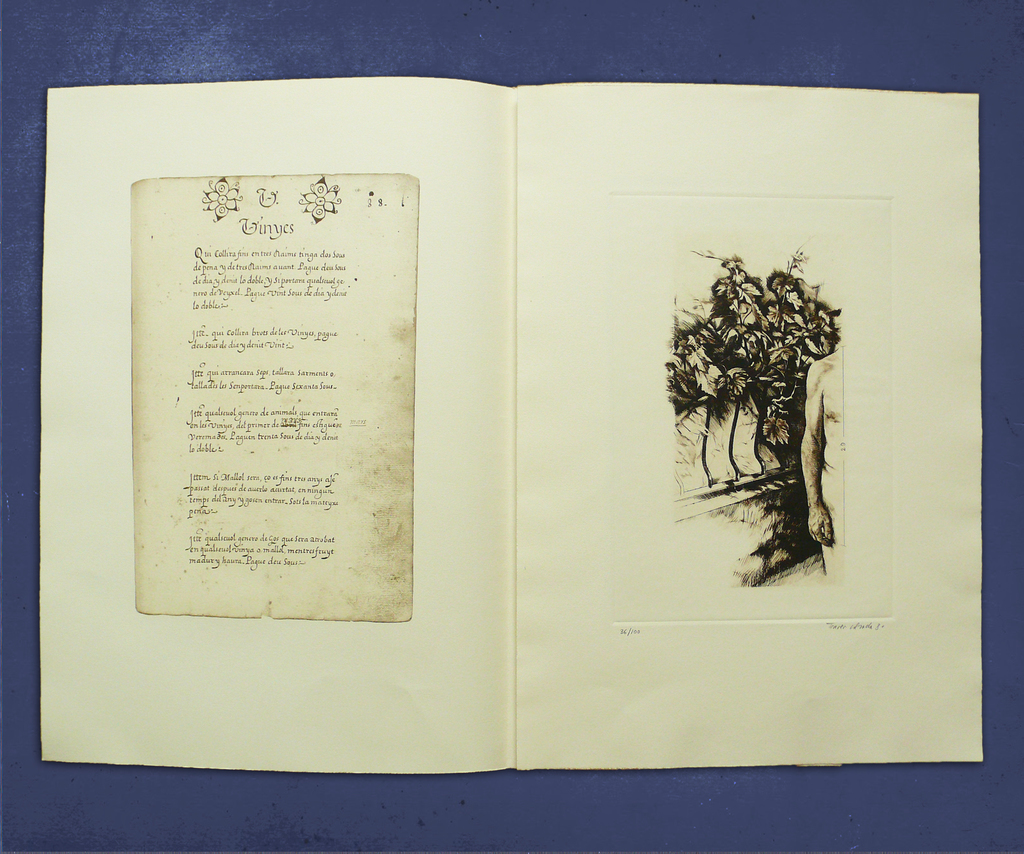 V.
38.
Vinyes
Qui Collira fins en tres Raims tinga dos Sous
de pena y de tres Raims auant Pague deu Sous
de dia, y denit lo doble, y si portara qualseuol ge
nero de Veyxel. Pague Vint Sous de dia y denit
lo doble
Ite qui Collira brots de les Vinyes, pague
deu Sous de dia y denit Vint
Ite qui arrancara Seps, tallara Sarments o,
tallades les Senportara. Pague Sexanta Sous
Ite qualseuol genero de animals que entrara
en les Vinyes, del primer de fins esligueos
Veremades, Paguen trenta Sous de dia y denit
lo doble
Item Si Mallol sera, ço es fins tres anys
pasat despues de auerlo acurtat, en ningun
temps del Any y gosen entrar Sots la mateyxa
pena
Ite qualseuol genero de Gos que sera atrobat
en qualseuol Vinya o mallol, mentres fruyt
madur y haura. Pague deu Sous
36/100